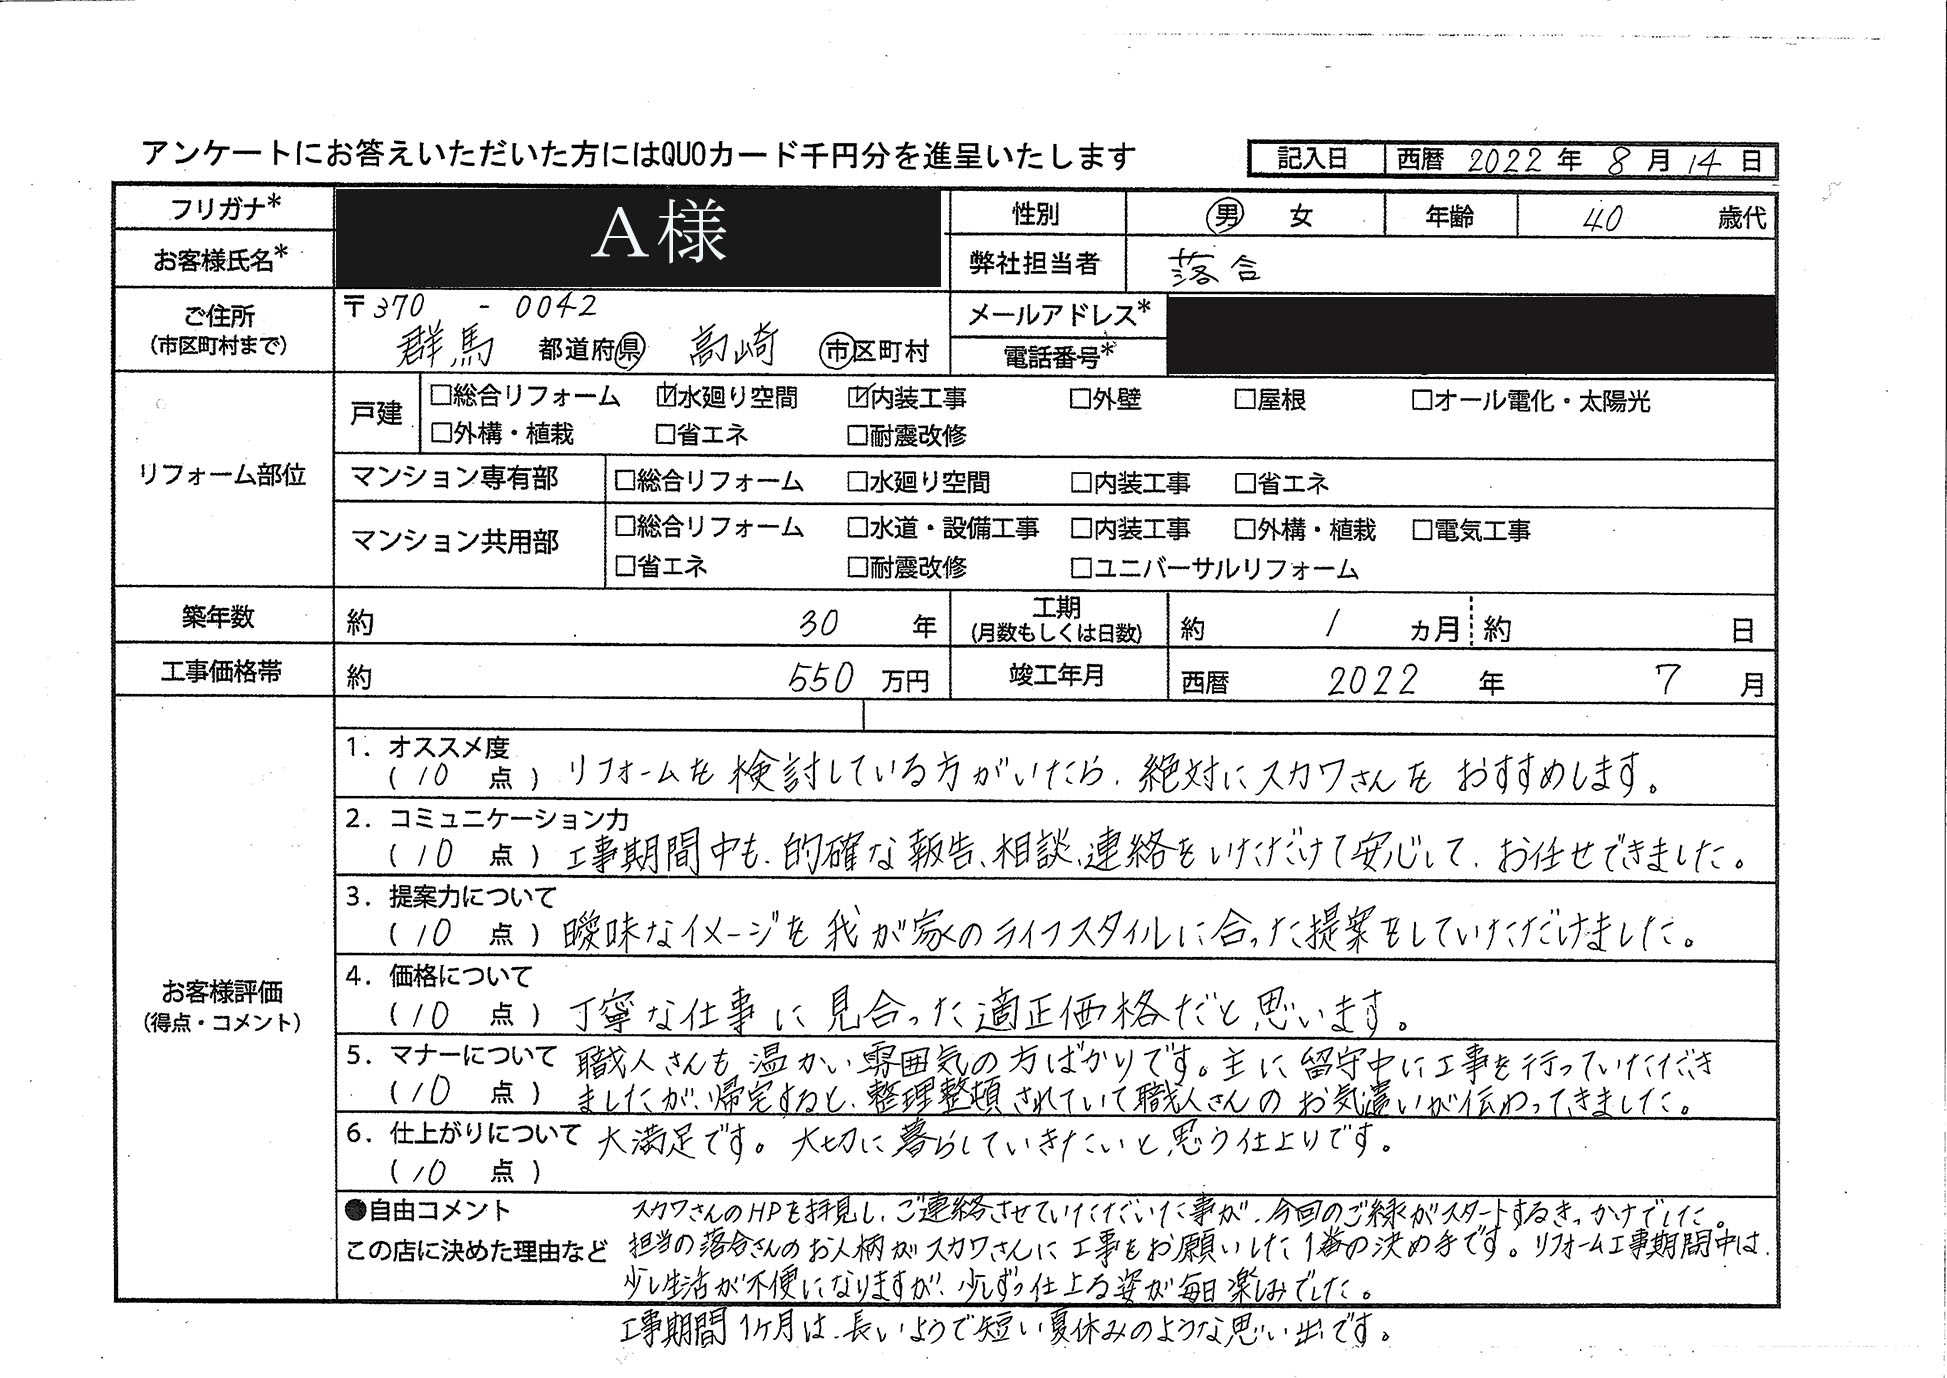 アンケートにお答えいただいた方にはQUOカード千円分を進呈いたします
記入日 西暦 2022 年 8 月 14 日
フリガナ*
A様
性別 男 女 年齢 40 歳代
お客様氏名*
弊社担当者 落合
ご住所
(市区町村まで)
〒370 - 0042
群馬 都道府県 高崎 市区町村
メールアドレス*
電話番号*
リフォーム部位
戸建
□総合リフォーム ☑水廻り空間 ☑内装工事 □外壁 □屋根 □オール電化・太陽光
□外構・植栽 □省エネ □耐震改修
マンション専有部 □総合リフォーム □水廻り空間 □内装工事 □省エネ
マンション共用部
□総合リフォーム □水道・設備工事 □内装工事 □外構・植栽 □電気工事
□省エネ □耐震改修 □ユニバーサルリフォーム
築年数 約 30 年
工期
(月数もしくは日数)
約 1 ヵ月 約 日
工事価格帯 約 550 万円 竣工年月 西暦 2022 年 7 月
お客様評価
(得点・コメント)
1. オススメ度
(10 点) リフォームを検討している方がいたら、絶対にスカワさんをおすすめします。
2. コミュニケーション力
(10 点) 工事期間中も、的確な報告、相談、連絡をいただけて安心して、お任せできました。
3. 提案力について
(10 点) 曖昧なイメージを我が家のライフスタイルに合った提案をしていただけました。
4. 価格について
(10 点) 丁寧な仕事に見合った適正価格だと思います。
5. マナーについて 職人さんも温かい雰囲気の方ばかりです。主に留守中に工事を行っていただき
(10 点) ましたが、帰宅すると、整理整頓されていて職人さんのお気遣いが伝わってきました。
6. 仕上がりについて 大満足です。大切に暮らしていきたいと思う仕上りです。
(10 点)
●自由コメント スカワさんのHPを拝見し、ご連絡させていただいた事が、今回のご縁がスタートするきっかけでした。
この店に決めた理由など 担当の落合さんのお人柄がスカワさんに工事をお願いした1番の決め手です。リフォーム工事期間中は、
少し生活が不便になりますが、少しずつ仕上る姿が毎日楽しみでした。
工事期間1ヶ月は、長いようで短い夏休みのような思い出です。